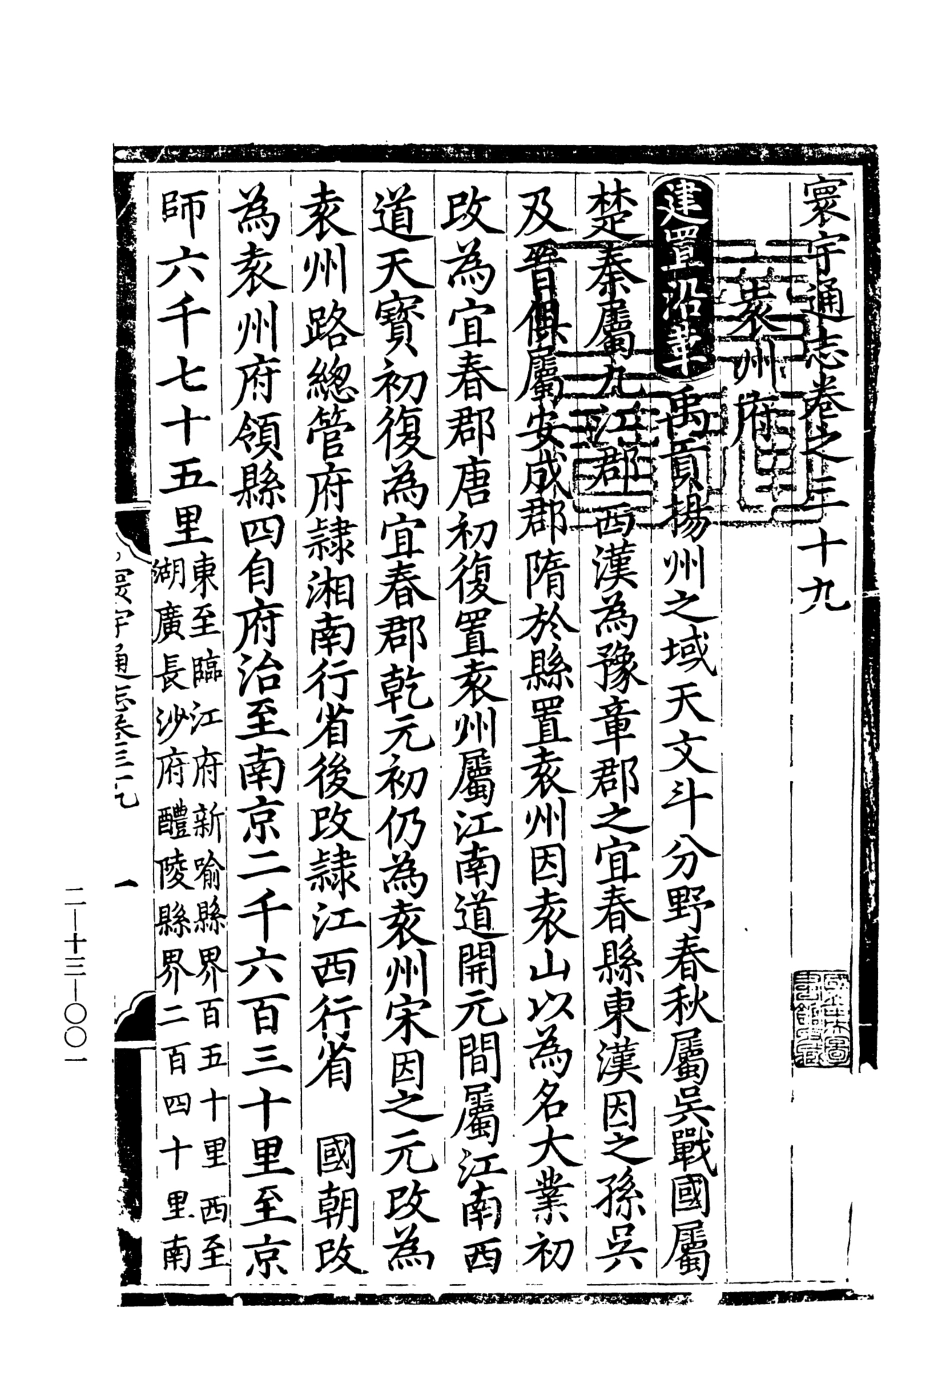 寰宇通志卷之三十九
袁州府
建置沿革 禹貢揚州之域天文斗分野春秋屬吳戰國屬
楚秦屬九江郡西漢為豫章郡之宜春縣東漢因之孫吳
及晉俱屬安成郡隋於縣置袁州因袁山以為名大業初
改為宜春郡唐初復置袁州屬江南道開元間屬江南西
道天寳初復為宜春郡乾元初仍為袁州宋因之元改為
袁州路總管府隷湘南行省後改隷江西行省 國朝改
為袁州府領縣四自府治至南京二千六百三十里至京
師六千七十五里東至臨江府新喻縣界百五十里西至
湖廣長沙府醴陵縣界二百四十里南
寰宇通志卷三十九
一
二—十三—〇〇一